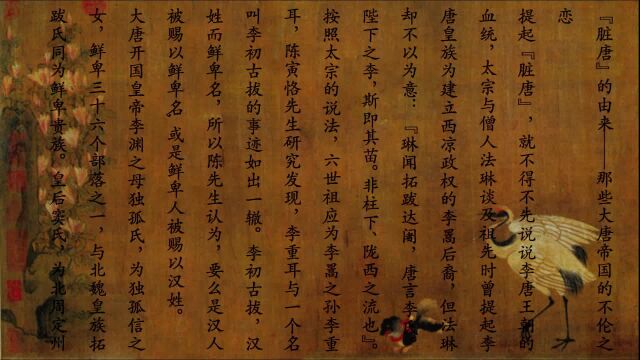 『脏唐』的由来——那些大唐帝国的不伦之
恋
提起『脏唐』，就不得不先说说李唐王朝的
血统，太宗与僧人法琳谈及祖先时曾提起李
唐皇族为建立西凉政权的李暠后裔，但法琳
却不以为意：『琳闻拓跋达阇，唐言李
陛下之李，斯即其苗。非柱下、陇西之流也』。
按照太宗的说法，六世祖应为李暠之孙李重
耳，陈寅恪先生研究发现，李重耳与一个名
叫李初古拔的事迹如出一辙。李初古拔，汉
姓而鲜卑名，所以陈先生认为，要么是汉人
被赐以鲜卑名，或是鲜卑人被赐以汉姓。
大唐开国皇帝李渊之母独孤氏，为独孤信之
女，鲜卑三十六个部落之一，与北魏皇族拓
跋氏同为鲜卑贵族。皇后窦氏，为北周定州